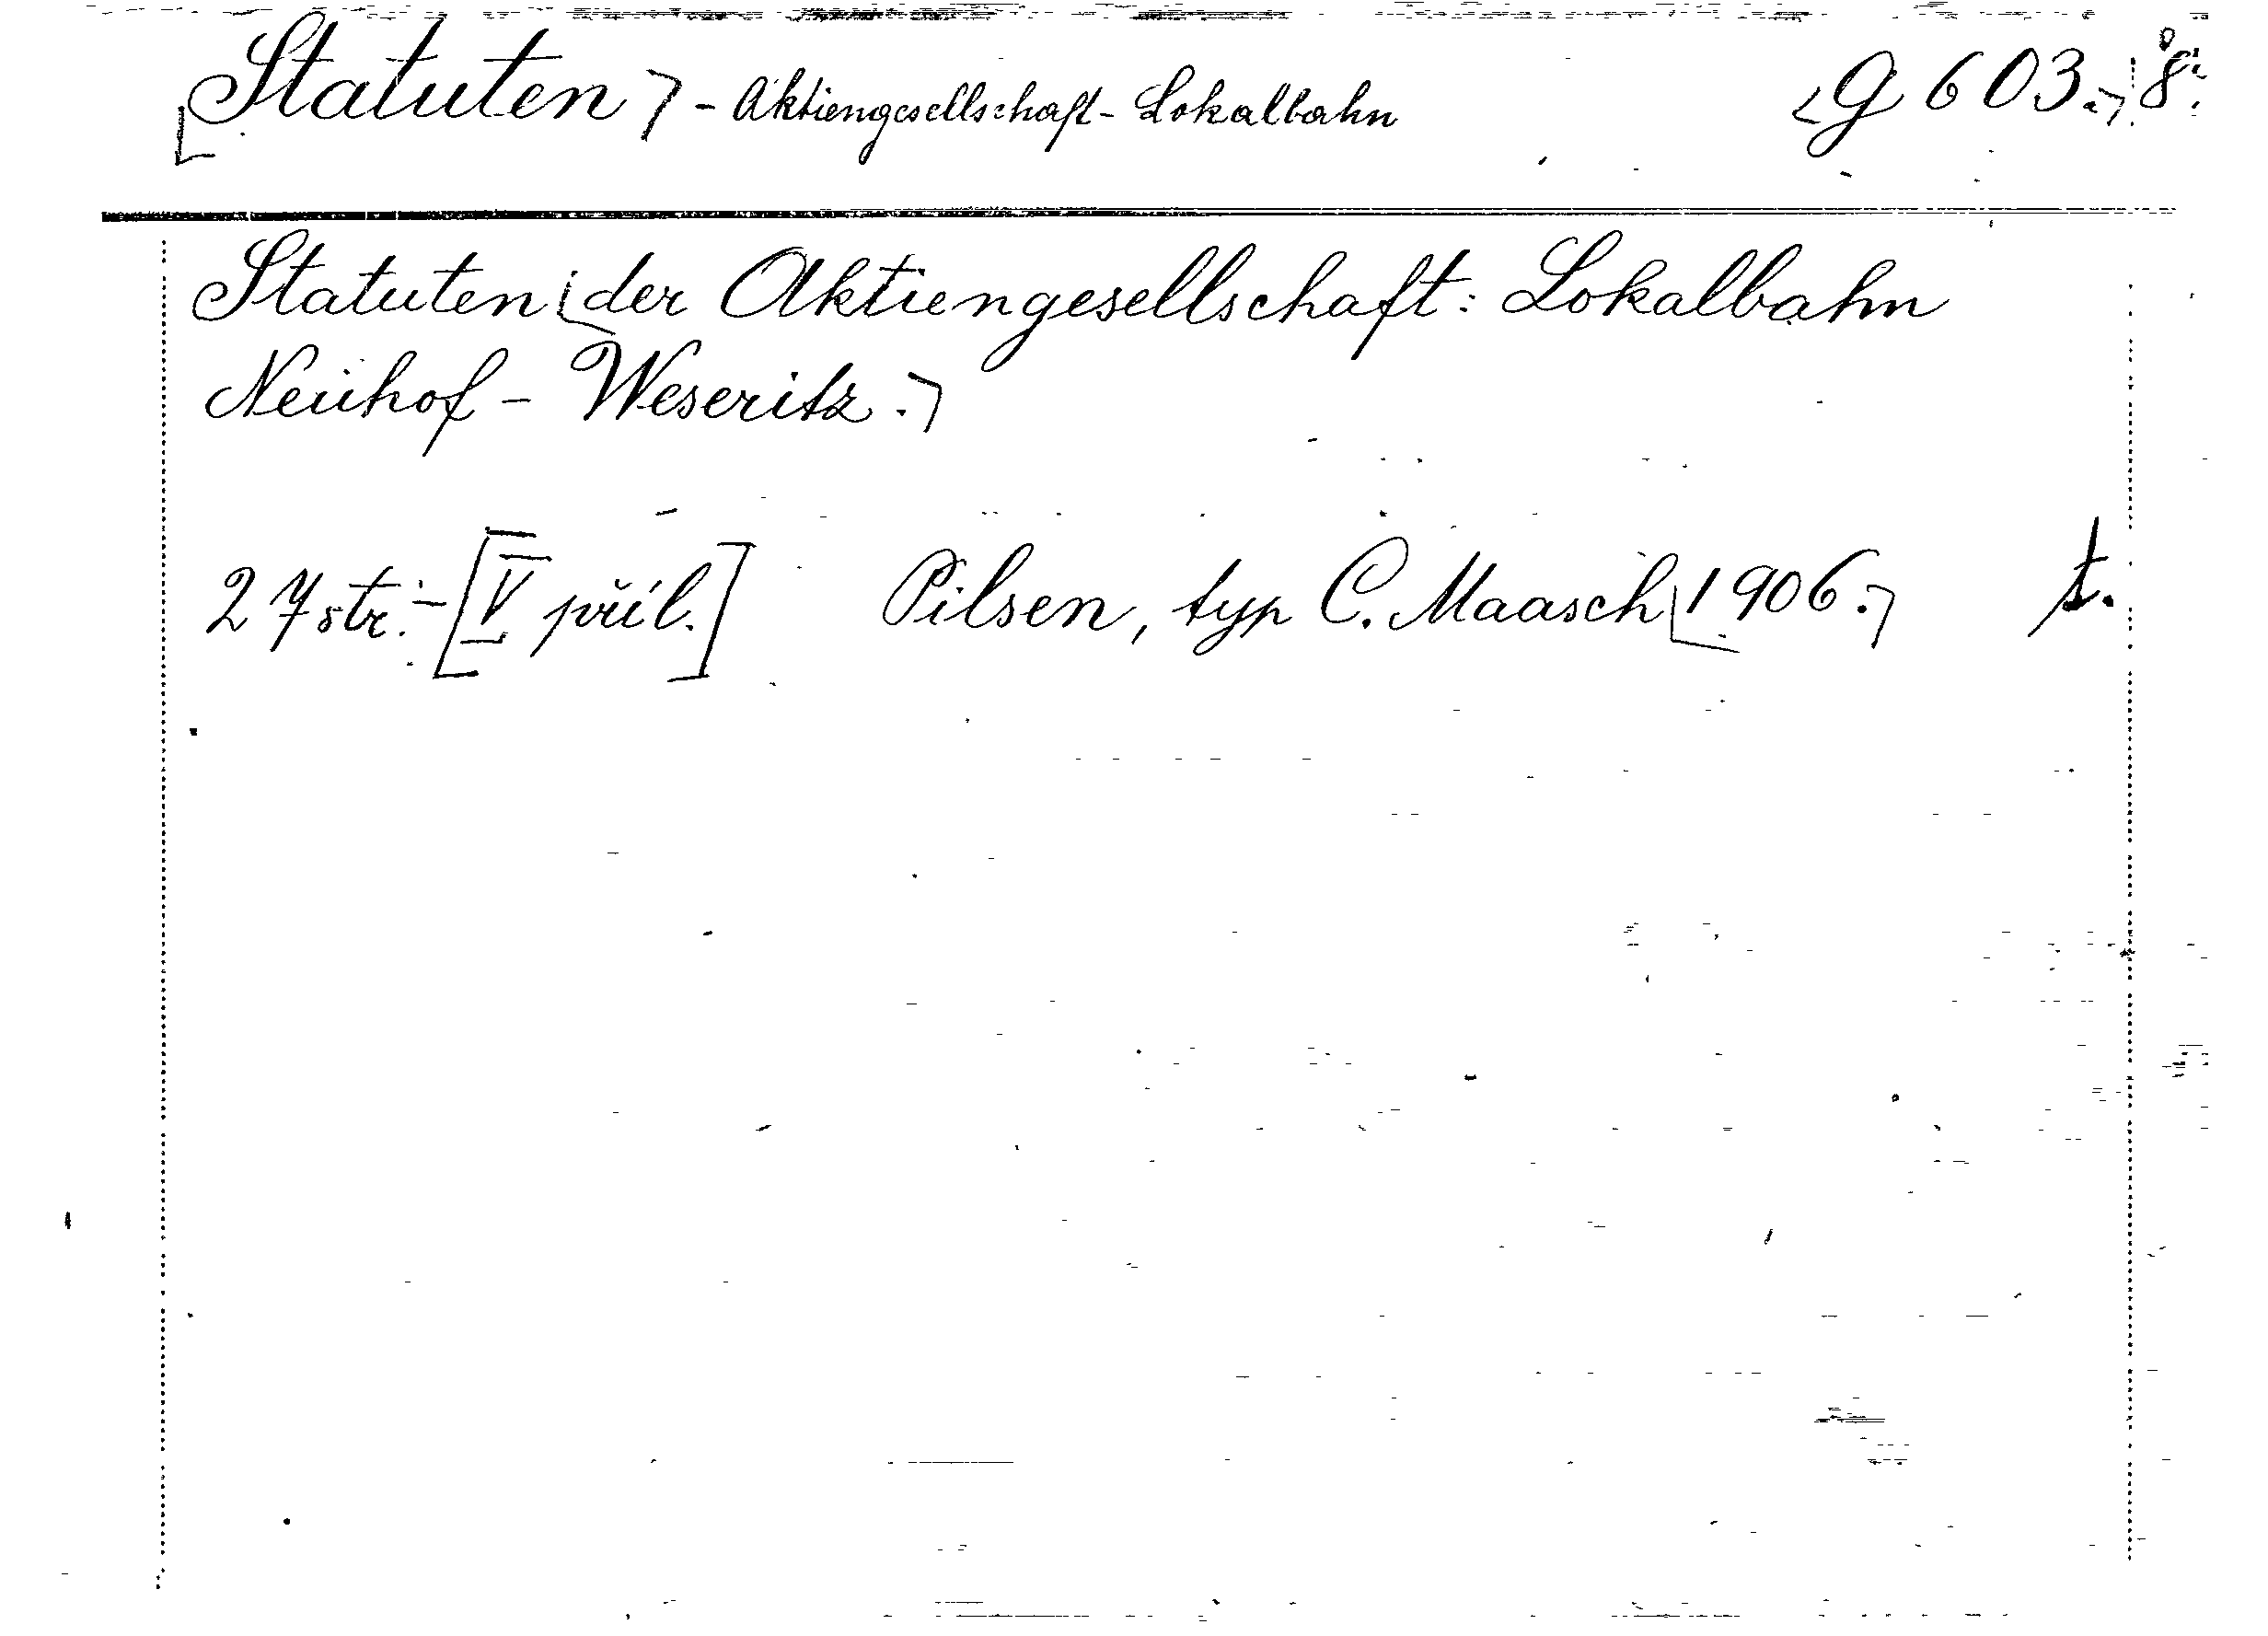 Statuten - Aktiengesellschaft - Lokalbahn g 603. 8°
Statuten der Aktiengesellschaft: Lokalbahn
Neuhof - Weseritz.
27 str. - [V příl.] Pilsen, typ C. Maasch 1906. t.